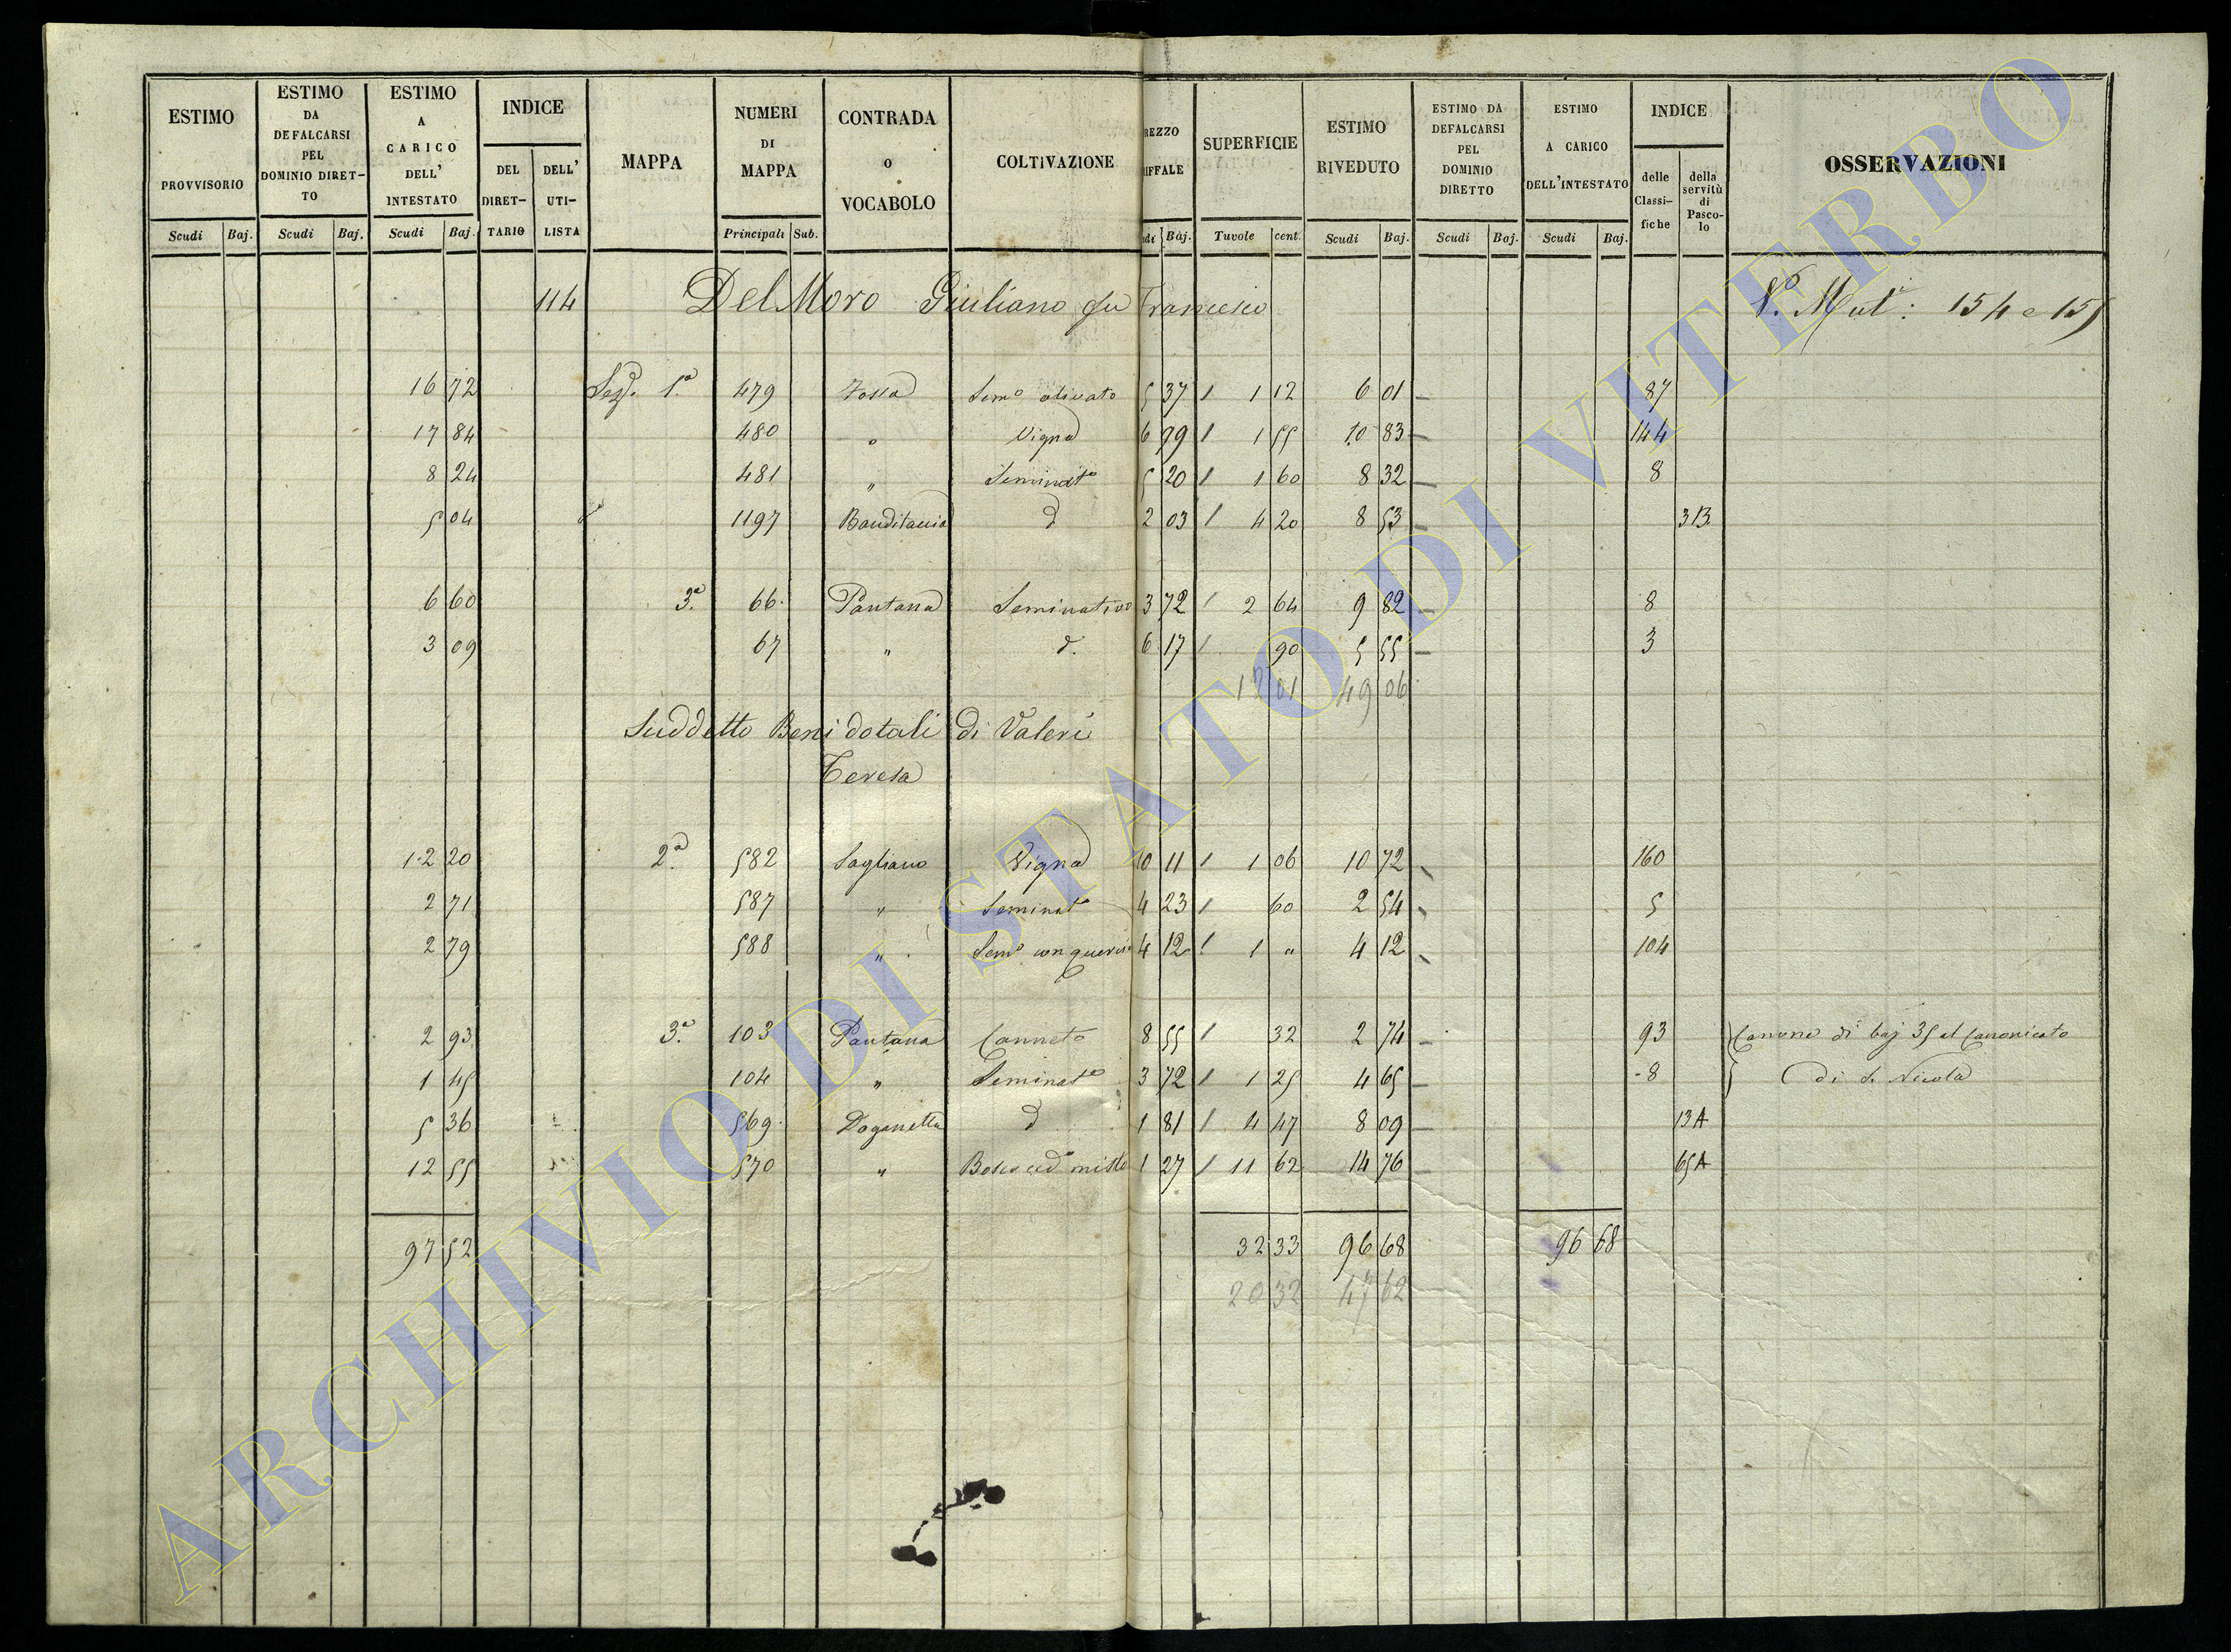 ESTIMO PROVVISORIO | ESTIMO DA DEFALCARSI PEL DOMINIO DIRET-TO | ESTIMO A CARICO DELL' INTESTATO | INDICE DEL DIRET-TARIO | DELL' UTI-LISTA | MAPPA | NUMERI DI MAPPA | CONTRADA o VOCABOLO | COLTIVAZIONE | REZZO IFFALE | SUPERFICIE | ESTIMO RIVEDUTO | ESTIMO DA DEFALCARSI PEL DOMINIO DIRETTO | ESTIMO A CARICO DELL'INTESTATO | INDICE delle Classi-fiche | della servitù di Pasco-lo | OSSERVAZIONI
Scudi | Baj. | Scudi | Baj. | Scudi | Baj. | Principali | Sub. | di | Baj. | Tavole | cent. | Scudi | Baj. | Scudi | Baj. | Scudi | Baj.
114 Del Moro Giuliano fu Francesco N. Mut.: 154 e 155
16 72 Sez. 1.a 479 Fossa Sem.o olivato 5 37 / 1 12 6 01 – 87
17 84 480 " Vigna 6 99 / 1 55 10 83 – 144
8 24 481 " Seminat.o 5 20 / 1 60 8 32 – 8
5 04 1197 Banditaccia d 2 03 / 4 20 8 53 – 3B
6 60 3.a 66. Pantana Seminativo 3 72 / 2 64 9 82 – 8
3 09 67 " d. 6 17 / 90 5 55 – 3
12 01 49 06
Suddetto Beni dotali di Valeri
Teresa
12 20 2.a 582 Sagliano Vigna 10 11 / 1 06 10 72 160
2 71 587 " Seminat.o 4 23 / 60 2 54 5
2 79 588 " Sem.o con querce 4 12 / 1 " 4 12 104
2 93 3.a 103 Pantana Canneto 8 55 / 32 2 74 – 93 Canone di baj 35 al Canonicato
1 45 104 " Seminat.o 3 72 / 1 25 4 65 – 8 di S. Nicola
5 36 569. Doganella d 1 81 / 4 47 8 09 – 13A
12 55 570 " Bosco ced.o misto 1 27 / 11 62 14 76 – 65A
97 52 32 33 96 68 96 68
20 32 47 62
ARCHIVIO DI STATO DI VITERBO